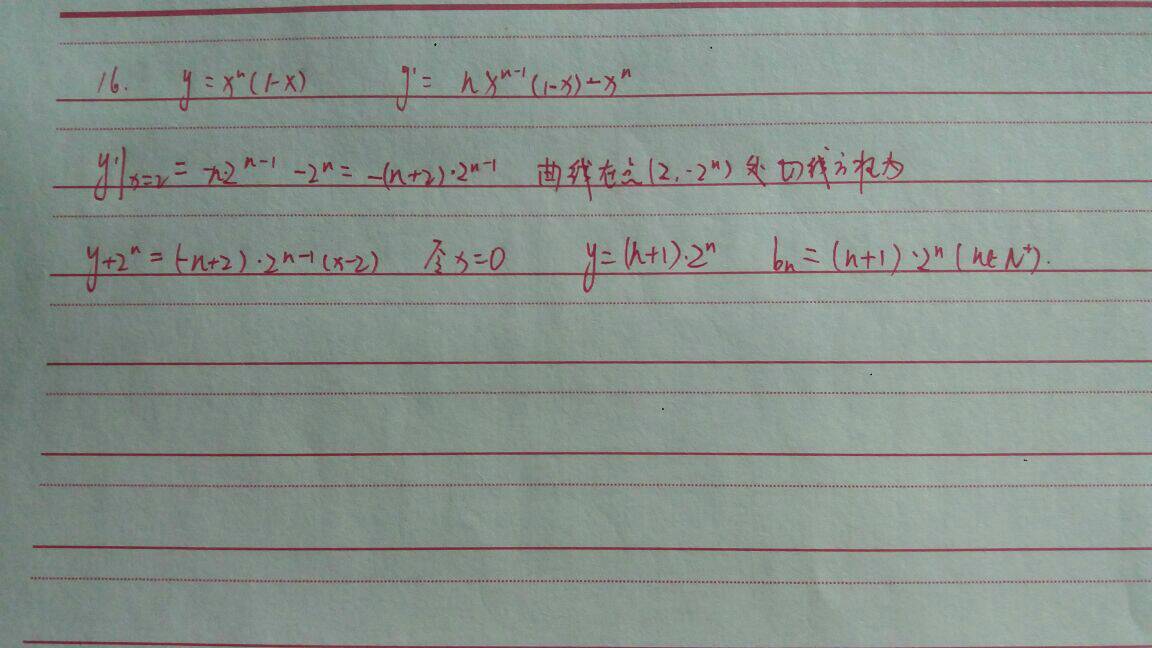 16. y=xⁿ(1-x) y'= nxⁿ⁻¹(1-x)-xⁿ
y'|ₓ₌₂= -n2ⁿ⁻¹ -2ⁿ= -(n+2)·2ⁿ⁻¹ 曲线在点(2,-2ⁿ)处切线方程为
y+2ⁿ=(-n+2)·2ⁿ⁻¹(x-2) 令x=0 y=(n+1)·2ⁿ bₙ=(n+1)·2ⁿ(n∈N⁺).